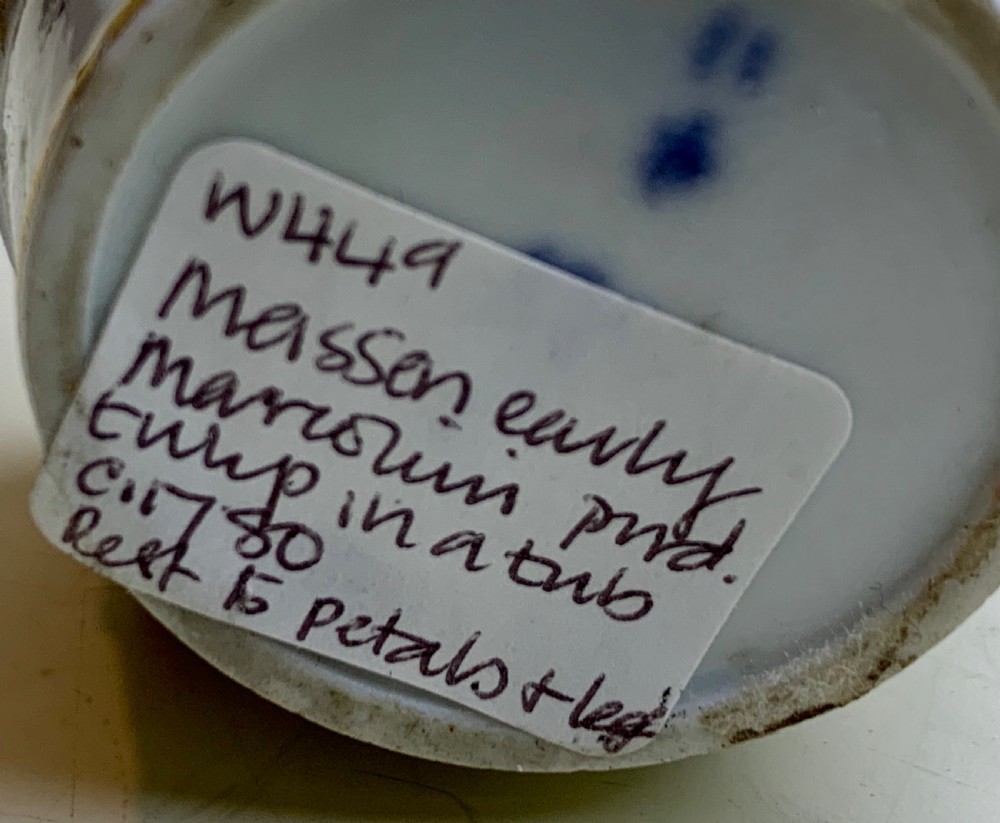 W449
Meissen early
Marcolini prd.
tulip in a tub
c.1780
Rest to petals + leaf